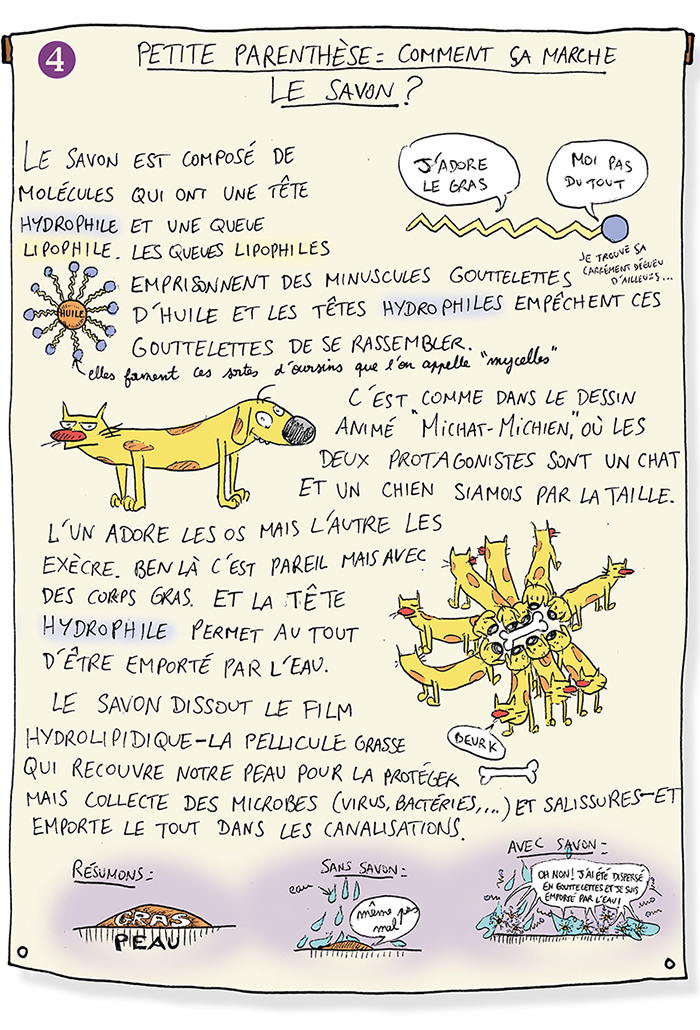 4
PETITE PARENTHÈSE : COMMENT ÇA MARCHE
LE SAVON ?
LE SAVON EST COMPOSÉ DE
MOLÉCULES QUI ONT UNE TÊTE
HYDROPHILE ET UNE QUEUE
LIPOPHILE. LES QUEUES LIPOPHILES
J'ADORE
LE GRAS
MOI PAS
DU TOUT
JE TROUVE ÇA
CARRÉMENT DÉGUEU
D'AILLEURS...
HUILE
EMPRISONNENT DES MINUSCULES GOUTTELETTES
D'HUILE ET LES TÊTES HYDROPHILES EMPÊCHENT CES
GOUTTELETTES DE SE RASSEMBLER.
elles forment ces sortes d'oursins que l'on appelle "mycelles"
C'EST COMME DANS LE DESSIN
ANIMÉ "MICHAT-MICHIEN", OÙ LES
DEUX PROTAGONISTES SONT UN CHAT
ET UN CHIEN SIAMOIS PAR LA TAILLE.
L'UN ADORE LES OS MAIS L'AUTRE LES
EXÈCRE. BEN LÀ C'EST PAREIL MAIS AVEC
DES CORPS GRAS. ET LA TÊTE
HYDROPHILE PERMET AU TOUT
D'ÊTRE EMPORTÉ PAR L'EAU.
BEURK
LE SAVON DISSOUT LE FILM
HYDROLIPIDIQUE-LA PELLICULE GRASSE
QUI RECOUVRE NOTRE PEAU POUR LA PROTÉGER
MAIS COLLECTE DES MICROBES (VIRUS, BACTÉRIES,...) ET SALISSURES-ET
EMPORTE LE TOUT DANS LES CANALISATIONS.
RÉSUMONS :
GRAS
PEAU
SANS SAVON :
eau
même pas
mal !
AVEC SAVON :
OH NON ! J'AI ÉTÉ DISPERSÉ
EN GOUTTELETTES ET JE SUIS
EMPORTÉ PAR L'EAU !